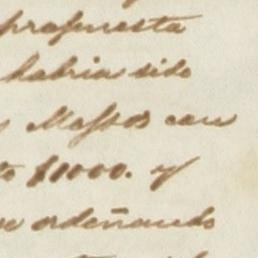 propuesta
habria sido
Massos con
$1000. y
se ordeñando